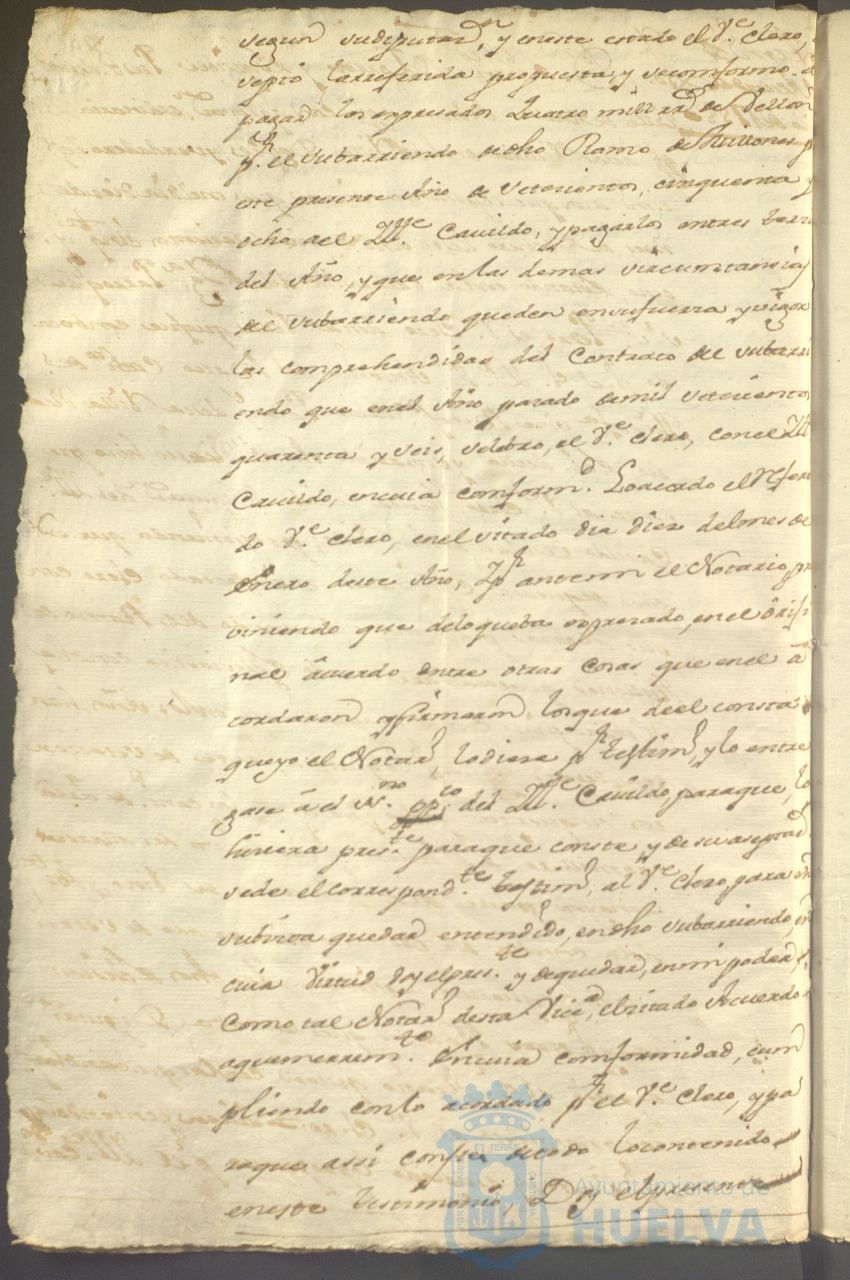 segun su diputaz.n, y en este estado el V.e Clero,
septo la referida propuesta, y se conformo a
pagar los expresados quatro mill rr.s de Vellon
p.r el subarriendo de dho Ramo de Millones p
este presente Año de setesientos, cinquenta y
ocho a el Ill.e Cavildo, y pagarlos en tres terz
del Año, y que en las demas sircumstansias
de subarriendo queden en su fuerza y vigor
las comprehendidas del Contrato de subarri
endo que en el Año pasado de mil setesientos
quarenta y seis, selebro, el V.e Clero, con el Ill
Cavildo, en cuia comform.d Lo acordo el refer
do V.e Clero, en el sitado dia diez del mes de
Enero deste Año, p.r ante mi el Notario, pre
viniendo que de lo que ba expresado, en el orixi
nal acuerdo entre otras cosas que en el a
cordaron y firmaron los que de el consta
que yo el Notar.o, lo diese p.r testim.o, y lo entre
gase a el ss.no pp.co del Ill.e Cavildo, para que, lo
hiciera pres.te para que conste y de su aseptaz.n
se de el correspond.te testim.o, al V.e Clero, para
su vista quedar entendido, en dho subarriendo, en
cuia Virtud doy el pres.te y de quedar, en mi poder
Como tal Notar.o desta Vic.a, el sitado Acuerdo
a que me rrem.to En cuia comformidad, cum
pliendo con lo acordado p.r el V.e Clero, y pa
ra que assi conste de todo lo contenido
en este testimonio, Doy el presente
Ayuntamiento de
HUELVA